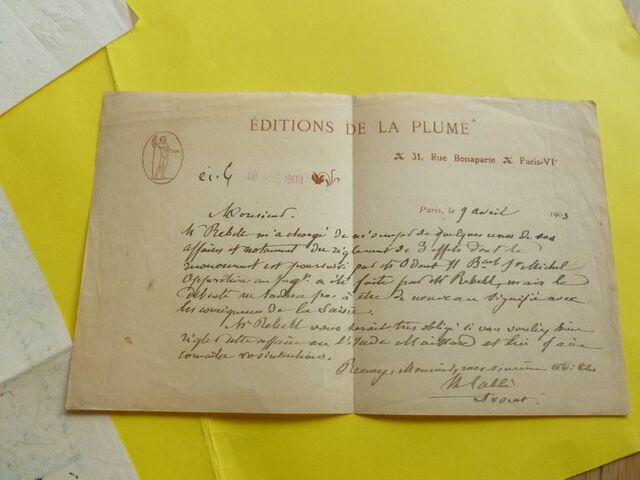 ÉDITIONS DE LA PLUME
31, Rue Bonaparte Paris-VIe
10 1903
Paris, le 9 avril 1903
Monsieur.
Mr Rebell m'a chargé de m'occuper de quelques unes de ses
affaires et notamment du règlement de 3 effets dont le
est poursuivi par M Odent Bard St Michel
Opposition au Jugt a été faite par M Rebell, mais le
pas à être de nouveau signifié avec
les de la Saisie.
Mr Rebell vous serait très obligé si vous vouliez bien
régler cette affaire au de Maillard et lui faire
connaître vos intentions.
Recevez, Monsieur, mes sincères
avocat.